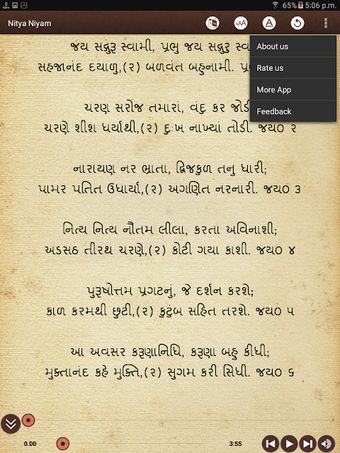 65% 5:06 p.m.
Nitya Niyam
About us
Rate us
More App
Feedback
જય સદ્ગુરૂ સ્વામી, પ્રભુ જય સદ્ગુરૂ
સહજાનંદ દયાળુ,(૨) બળવંત બહુનામી.
ચરણ સરોજ તમારાં, વંદુ કર જોડી
ચરણે શીશ ધર્યાથી,(૨) દુઃખ નાખ્યાં તોડી. જય૦ ૨
નારાયણ નર ભ્રાતા, દ્વિજકુળ તનુ ધારી;
પામર પતિત ઉધાર્યા,(૨) અગણિત નરનારી. જય૦ ૩
નિત્ય નિત્ય નૌતમ લીલા, કરતા અવિનાશી;
અડસઠ તીરથ ચરણે,(૨) કોટી ગયા કાશી. જય૦ ૪
પુરૂષોત્તમ પ્રગટનું, જે દર્શન કરશે;
કાળ કરમથી છુટી,(૨) કુટુંબ સહિત તરશે. જય૦ ૫
આ અવસર કરૂણાનિધિ, કરૂણા બહુ કીધી;
મુક્તાનંદ કહે મુક્તિ,(૨) સુગમ કરી સિધી. જય૦ ૬
0.00 3:55